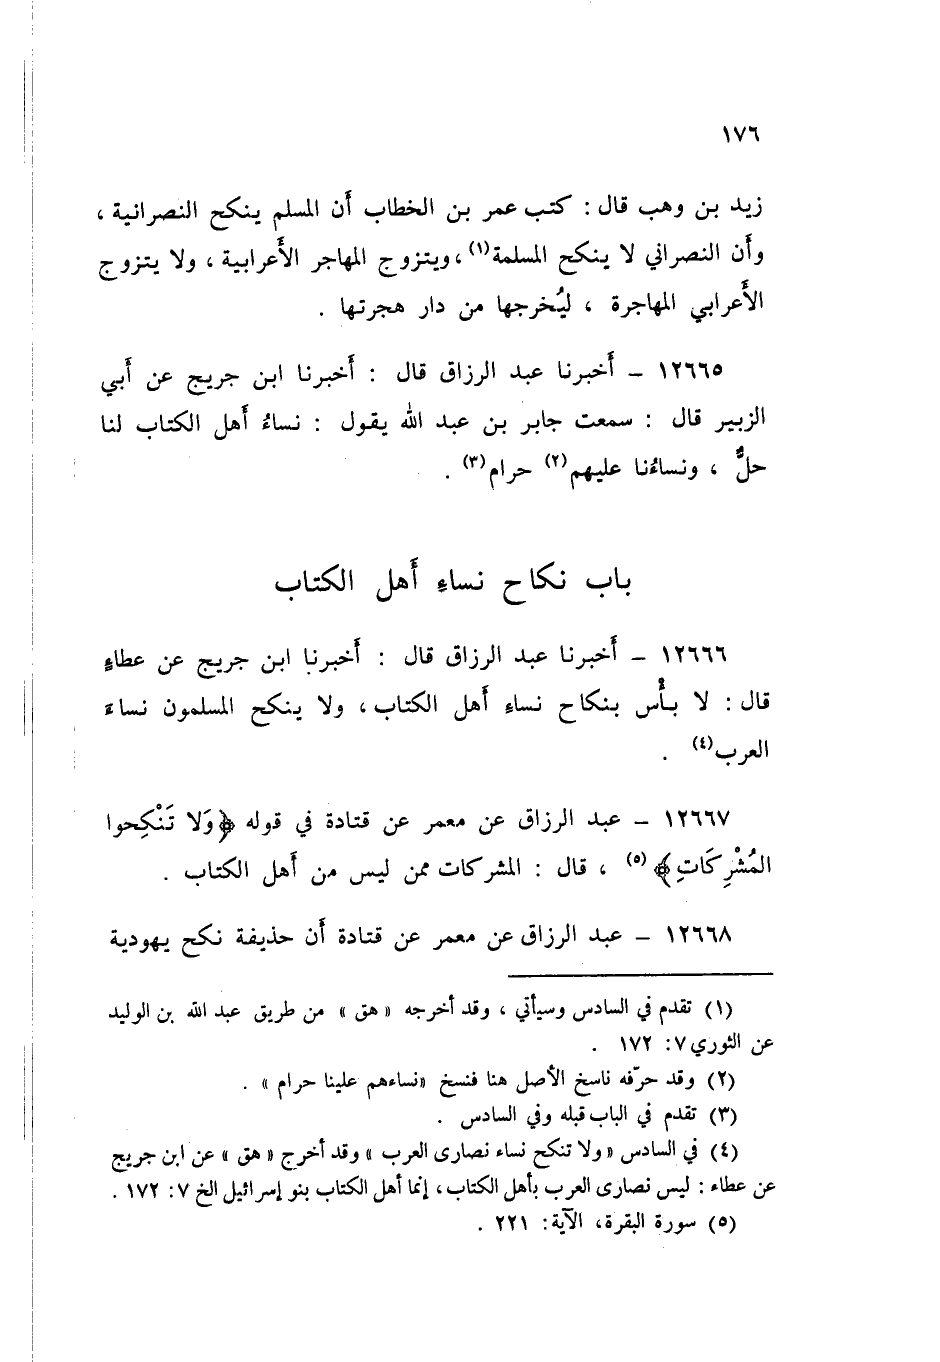 ١٧٦
زيد بن وهب قال : كتب عمر بن الخطاب أن المسلم ينكح النصرانية ،
وأن النصراني لا ينكح المسلمة(١) ، ويتزوج المهاجر الأَعرابية ، ولا يتزوج
الأَعرابي المهاجرة ، ليُخرجها من دار هجرتها .
١٢٦٦٥ – أَخبرنا عبد الرزاق قال : أَخبرنا ابن جريج عن أَبي
الزبير قال : سمعت جابر بن عبد الله يقول : نساءُ أَهل الكتاب لنا
حلٌّ ، ونساءُنا عليهم(٢) حرام(٣) .
باب نكاح نساءِ أَهل الكتاب
١٢٦٦٦ – أَخبرنا عبد الرزاق قال : أَخبرنا ابن جريج عن عطاءٍ
قال : لا بأْس بنكاح نساءِ أَهل الكتاب ، ولا ينكح المسلمون نساءَ
العرب(٤) .
١٢٦٦٧ – عبد الرزاق عن معمر عن قتادة في قوله ﴿وَلا تَنْكِحوا
المُشْرِكَاتِ﴾ (٥) ، قال : المشركات ممن ليس من أَهل الكتاب .
١٢٦٦٨ – عبد الرزاق عن معمر عن قتادة أَن حذيفة نكح يهودية
(١) تقدم في السادس وسيأتي ، وقد أخرجه « هق » من طريق عبد الله بن الوليد
عن الثوري ٧: ١٧٢ .
(٢) وقد حرّفه ناسخ الأصل هنا فنسخ «نساءهم علينا حرام » .
(٣) تقدم في الباب قبله وفي السادس .
(٤) في السادس « ولا تنكح نساء نصارى العرب » وقد أخرج « هق » عن ابن جريج
عن عطاء : ليس نصارى العرب بأهل الكتاب ، إنما أهل الكتاب بنو إسرائيل الخ ٧: ١٧٢ .
(٥) سورة البقرة، الآية: ٢٢١ .